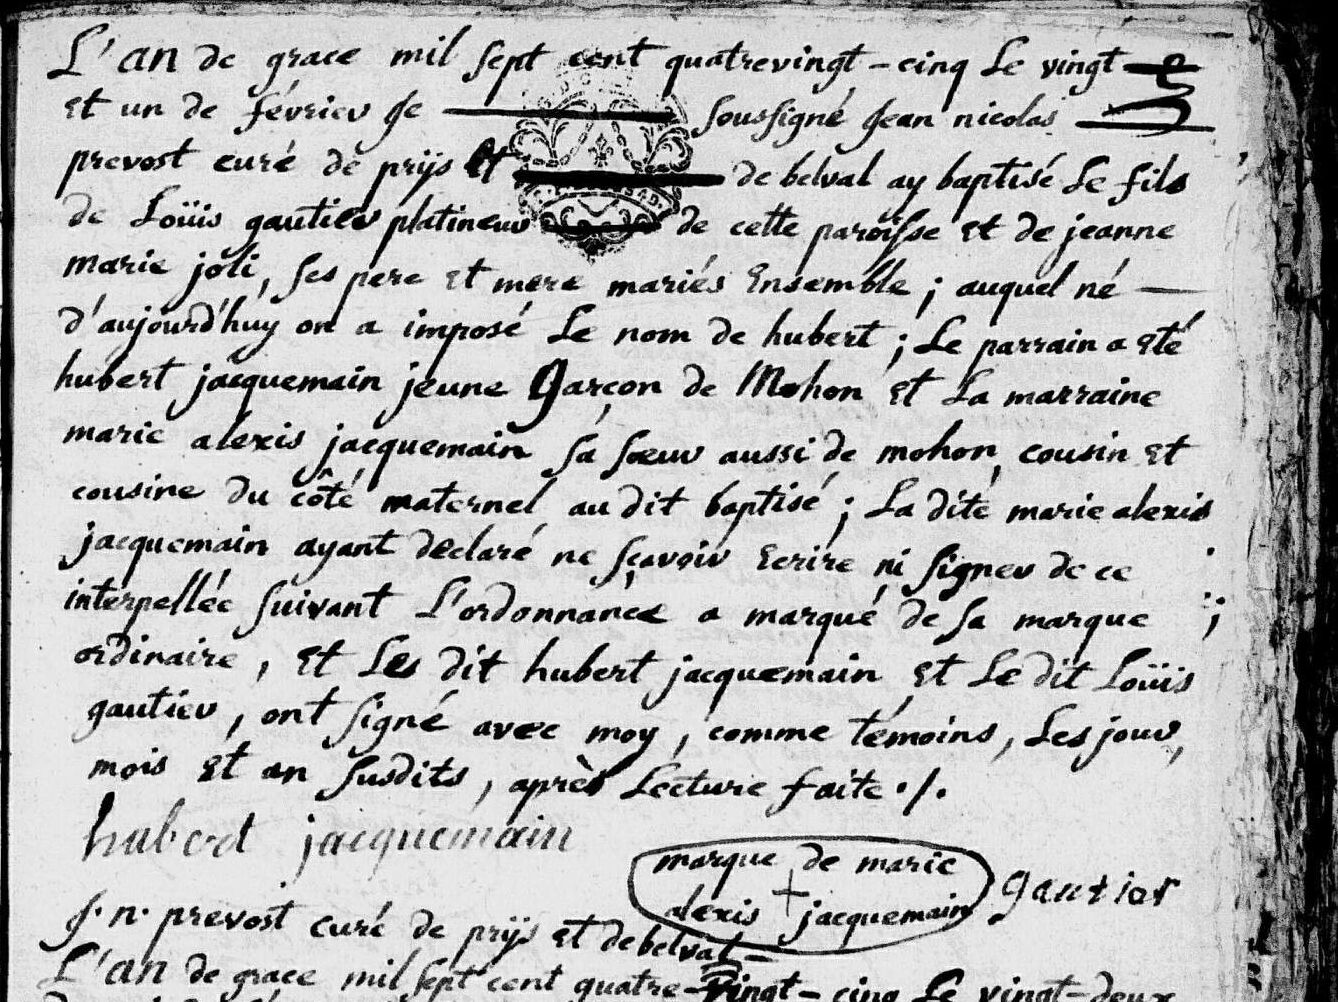 L'an de grace mil sept cent quatrevingt-cinq Le vingt
et un de février Je soussigné Jean nicolas
prevost curé de prijs et de belval ay baptisé Le fils
de Loüis gautier platineur de cette paroisse et de jeanne
marie joli, ses pere et mere mariés Ensemble ; auquel né
d'aujourd'huy on a imposé Le nom de hubert ; Le parrain a eté
hubert jacquemain jeune Garçon de Mohon et La marraine
marie alexis jacquemain sa sœur aussi de mohon cousin et
cousine du côté maternel au dit baptisé ; La dite marie alexis
jacquemain ayant declaré ne sçavoir ecrire ni signer de ce
interpellée suivant L'ordonnance a marqué de sa marque
ordinaire, et Les dit hubert jacquemain et Le dit Loüis
gautier, ont signé avec moy, comme témoins, Les jour,
mois et an susdits, après Lecture faite ./.
hubert jacquemain
marque de marie
alexis + jacquemain
gautier
J. n. prevost curé de prijs et de belval
L'an de grace mil sept cent quatre-vingt-cinq Le vingt-deux